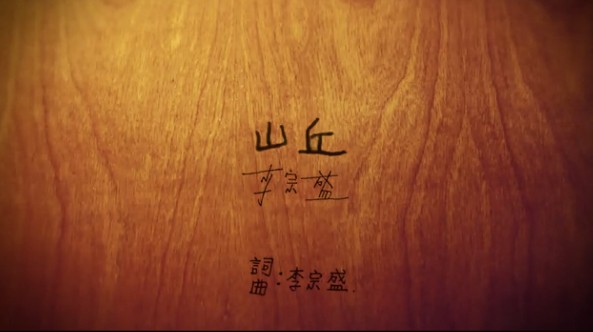 山丘
李宗盛
詞
曲:李宗盛